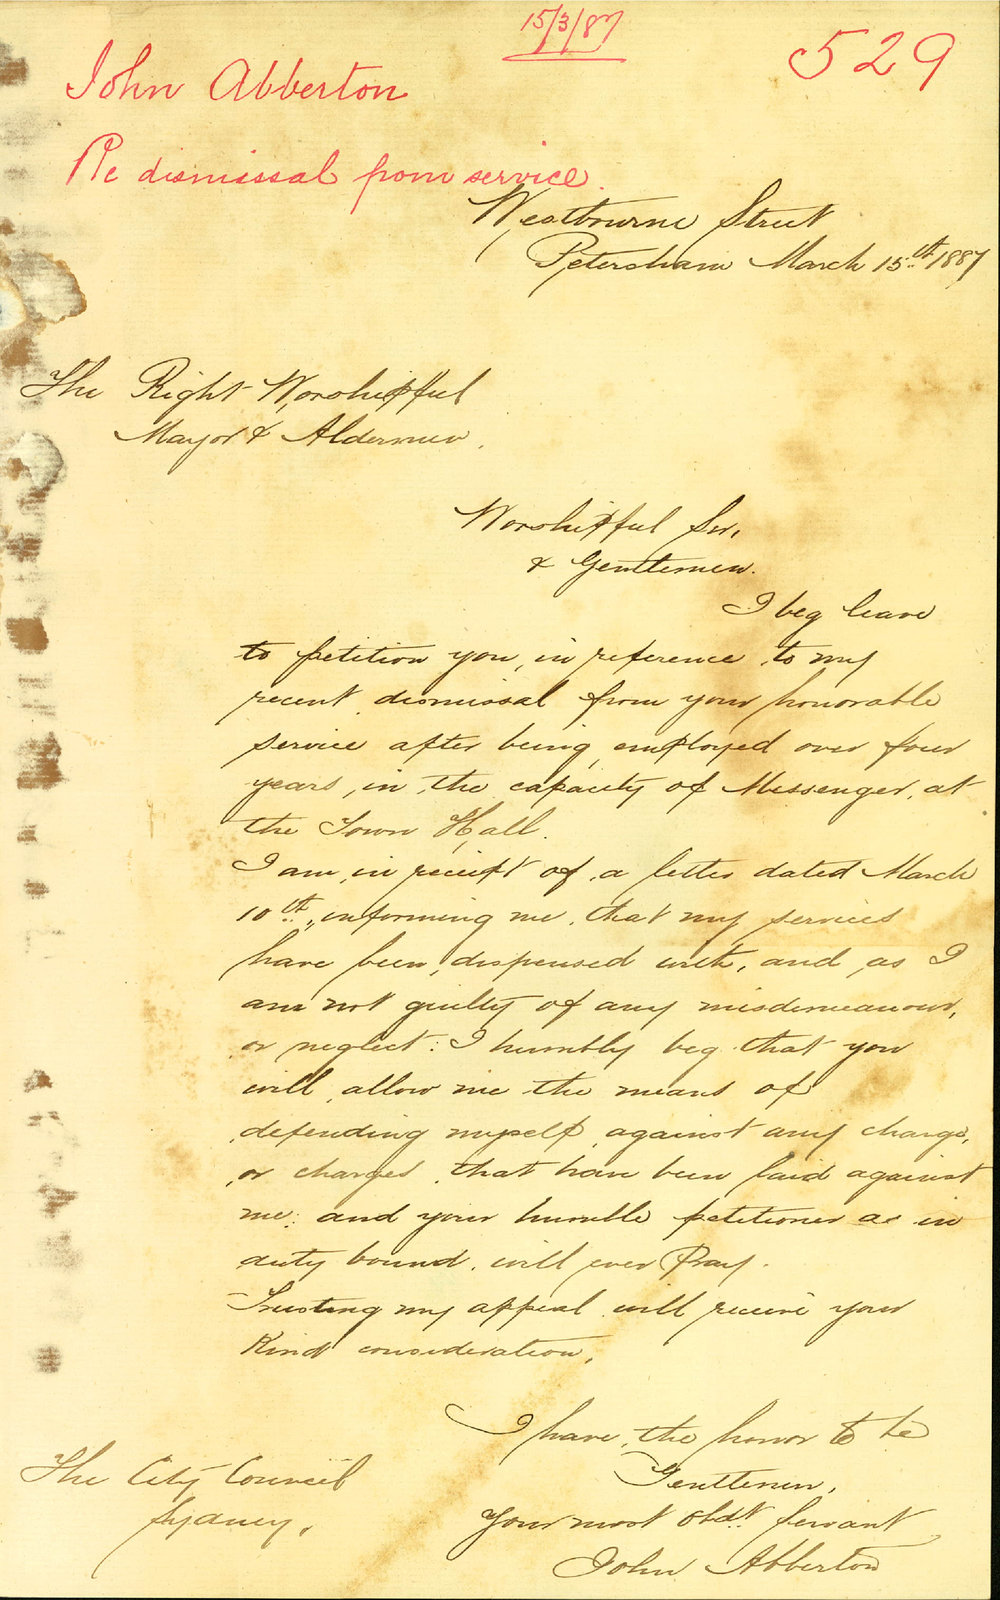 15/3/87
529
John Abberton
Re dismissal from service.
Westbourne Street
Petersham March 15th 1887
The Right Worshipful
Mayor & Aldermen.
Worshipful Sir,
& Gentlemen.
I beg leave
to petition you, in reference to my
recent dismissal from your honorable
service after being employed over four
years, in the capacity of Messenger, at
the Town Hall.
I am in receipt of a letter dated March
10th, informing me that my services
have been dispensed with, and as I
am not guilty of any misdemeanour,
or neglect: I humbly beg that you
will allow me the means of
defending myself against any charge,
or charges that have been laid against
me: and your humble petitioner as in
duty bound, will ever Pray.
Trusting my appeal will receive your
Kind consideration,
I have the honor to be
Gentlemen,
Your most obdt. Servant
John Abberton
The City Council
Sydney,